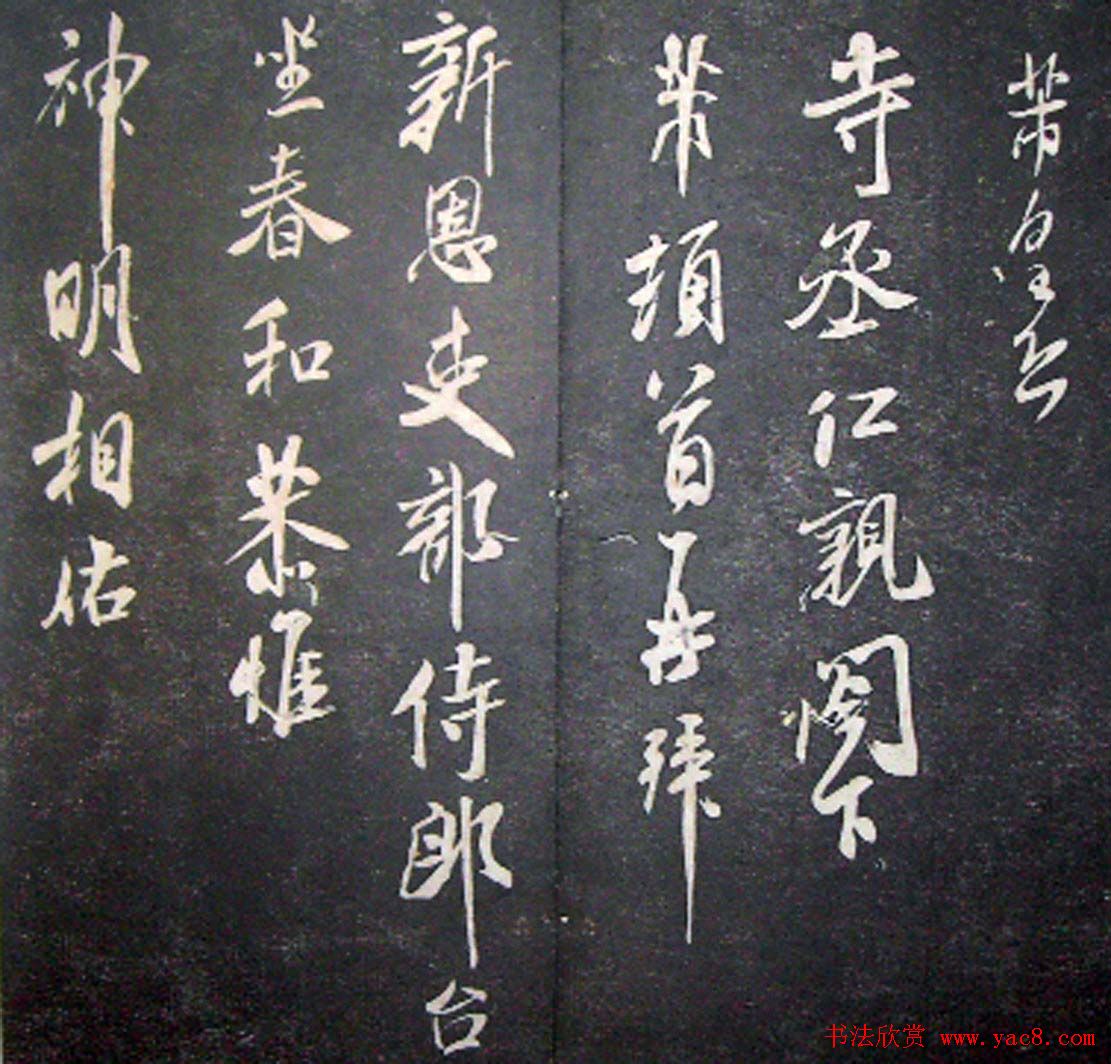 芾皇恐
寺丞仁親下
芾頓首再拜
新恩吏部侍郎台
坐春和恭惟
神明相佑
书法欣赏 www.yac8.com